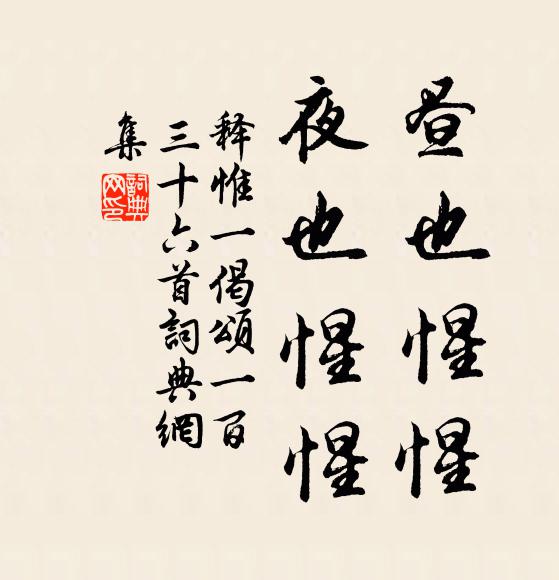 昼也惺惺
夜也惺惺
释惟一偈頌一百
三十六首詞典網
集
詞典網印